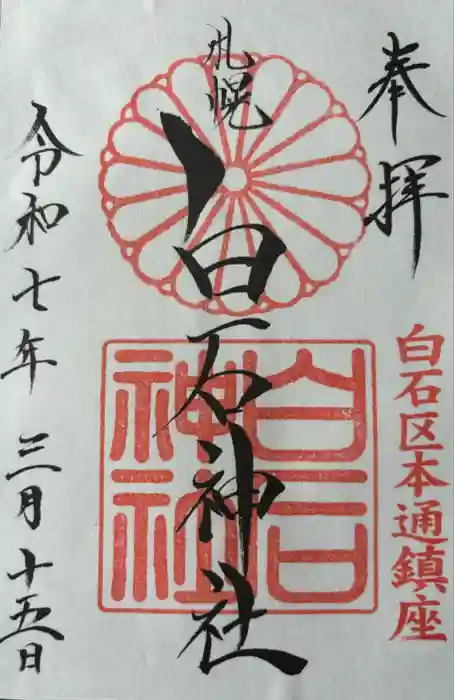 奉拝
白石区本通鎮座
札幌
白石神社
白石
神社
令和七年三月十五日